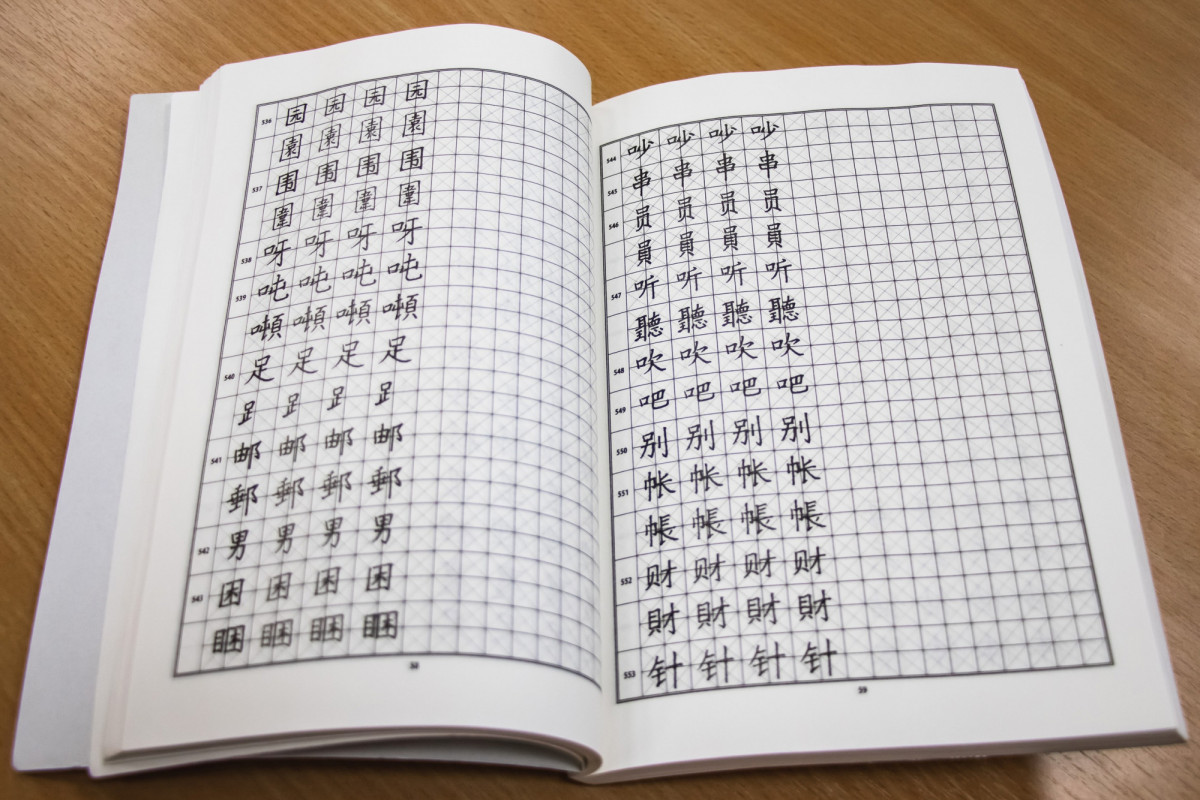 536 园 园 园 园
園 園 園 園
537 围 围 围 围
圍 圍 圍 圍
538 呀 呀 呀 呀
539 吨 吨 吨 吨
噸 噸 噸 噸
540 足 足 足 足
𧾷 𧾷 𧾷 𧾷
541 邮 邮 邮 邮
郵 郵 郵 郵
542 男 男 男 男
543 困 困 困 困
睏 睏 睏 睏
58
544 吵 吵 吵 吵
545 串 串 串 串
546 员 员 员 员
員 員 員 員
547 听 听 听 听
聽 聽 聽 聽
548 吹 吹 吹 吹
549 吧 吧 吧 吧
550 别 别 别 别
551 帐 帐 帐 帐
帳 帳 帳 帳
552 财 财 财 财
財 財 財 財
553 针 针 针 针
59